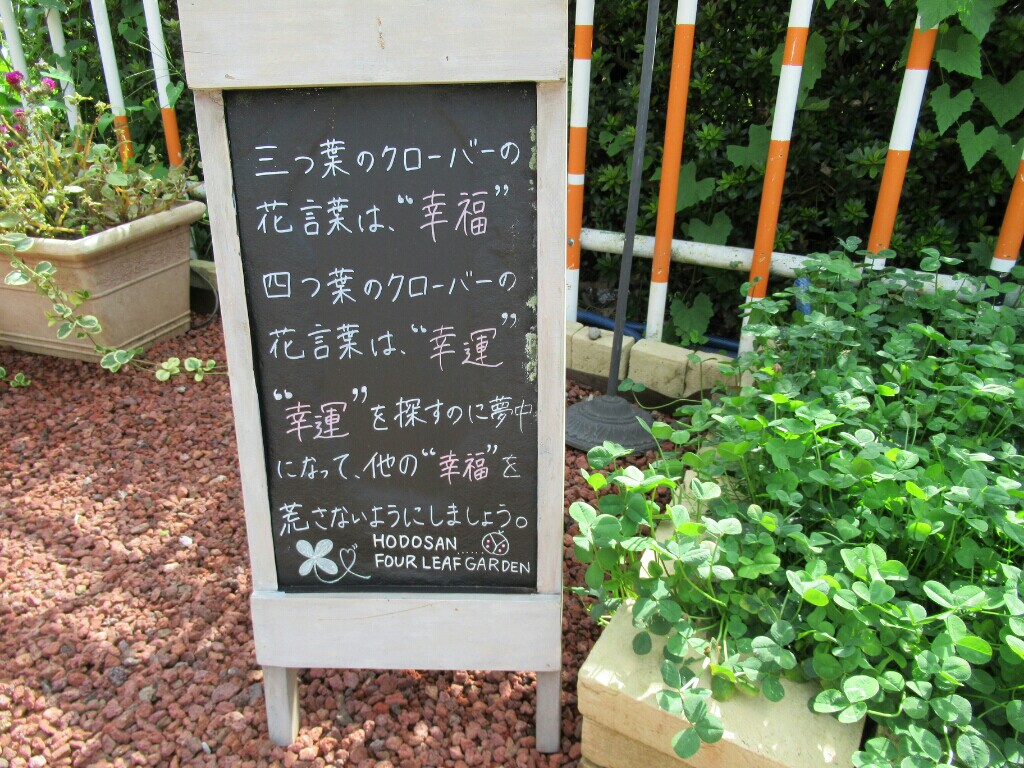 三つ葉のクローバーの
花言葉は、“幸福”
四つ葉のクローバーの
花言葉は、“幸運”
“幸運”を探すのに夢中
になって、他の“幸福”を
荒さないようにしましょう。
HODOSAN
FOUR LEAF GARDEN